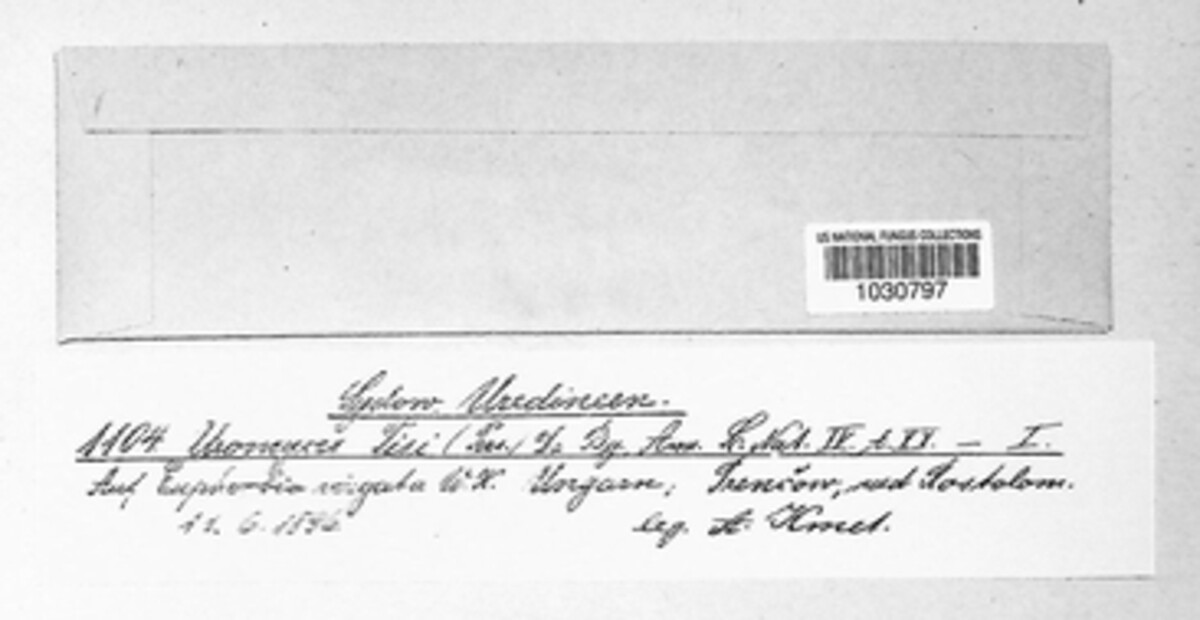 US NATIONAL FUNGUS COLLECTIONS
1030797
Sydow. Uredineen.
1104 Uromyces Pisi (Pers.) De By. Ann. Sc. Nat. IV. t. XX. — I.
Auf Euphorbia virgata W.K. Ungarn; Prenčow, sud
11. 6. 1896 leg. A. Kmet.